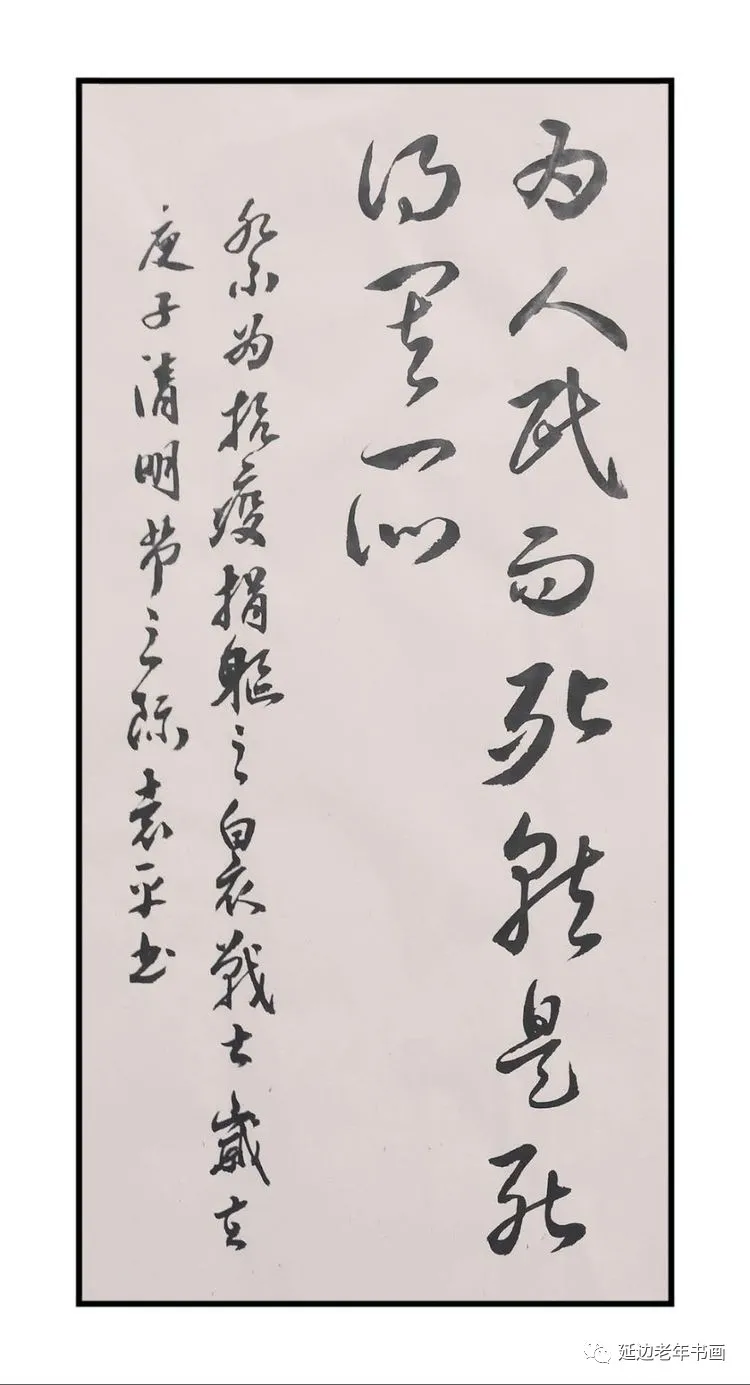 为人民而死就是死
得其所
祭为抗疫捐躯之白衣戰士歲在
庚子清明节之际袁平书
延边老年书画